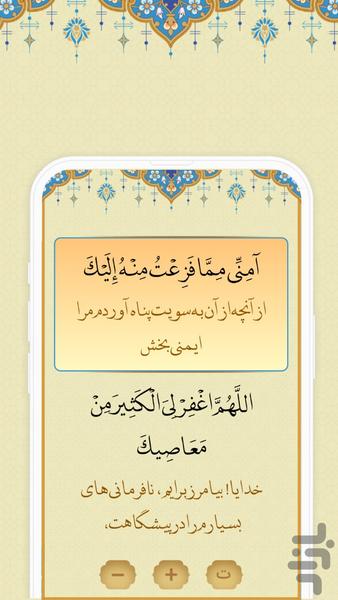 آمِنِّي مِمَّا فَزِعْتُ مِنْهُ إِلَيْكَ
از آنچه از آن به سویت پناه آوردم مرا
ایمنی بخش
اللَّهُمَّ اغْفِرْ لِيَ الْكَثِيرَ مِنْ
مَعَاصِيكَ
خدایا! بیامرز برایم، نافرمانی‌های
بسیارم را در پیشگاهت،
− + ت
بازار